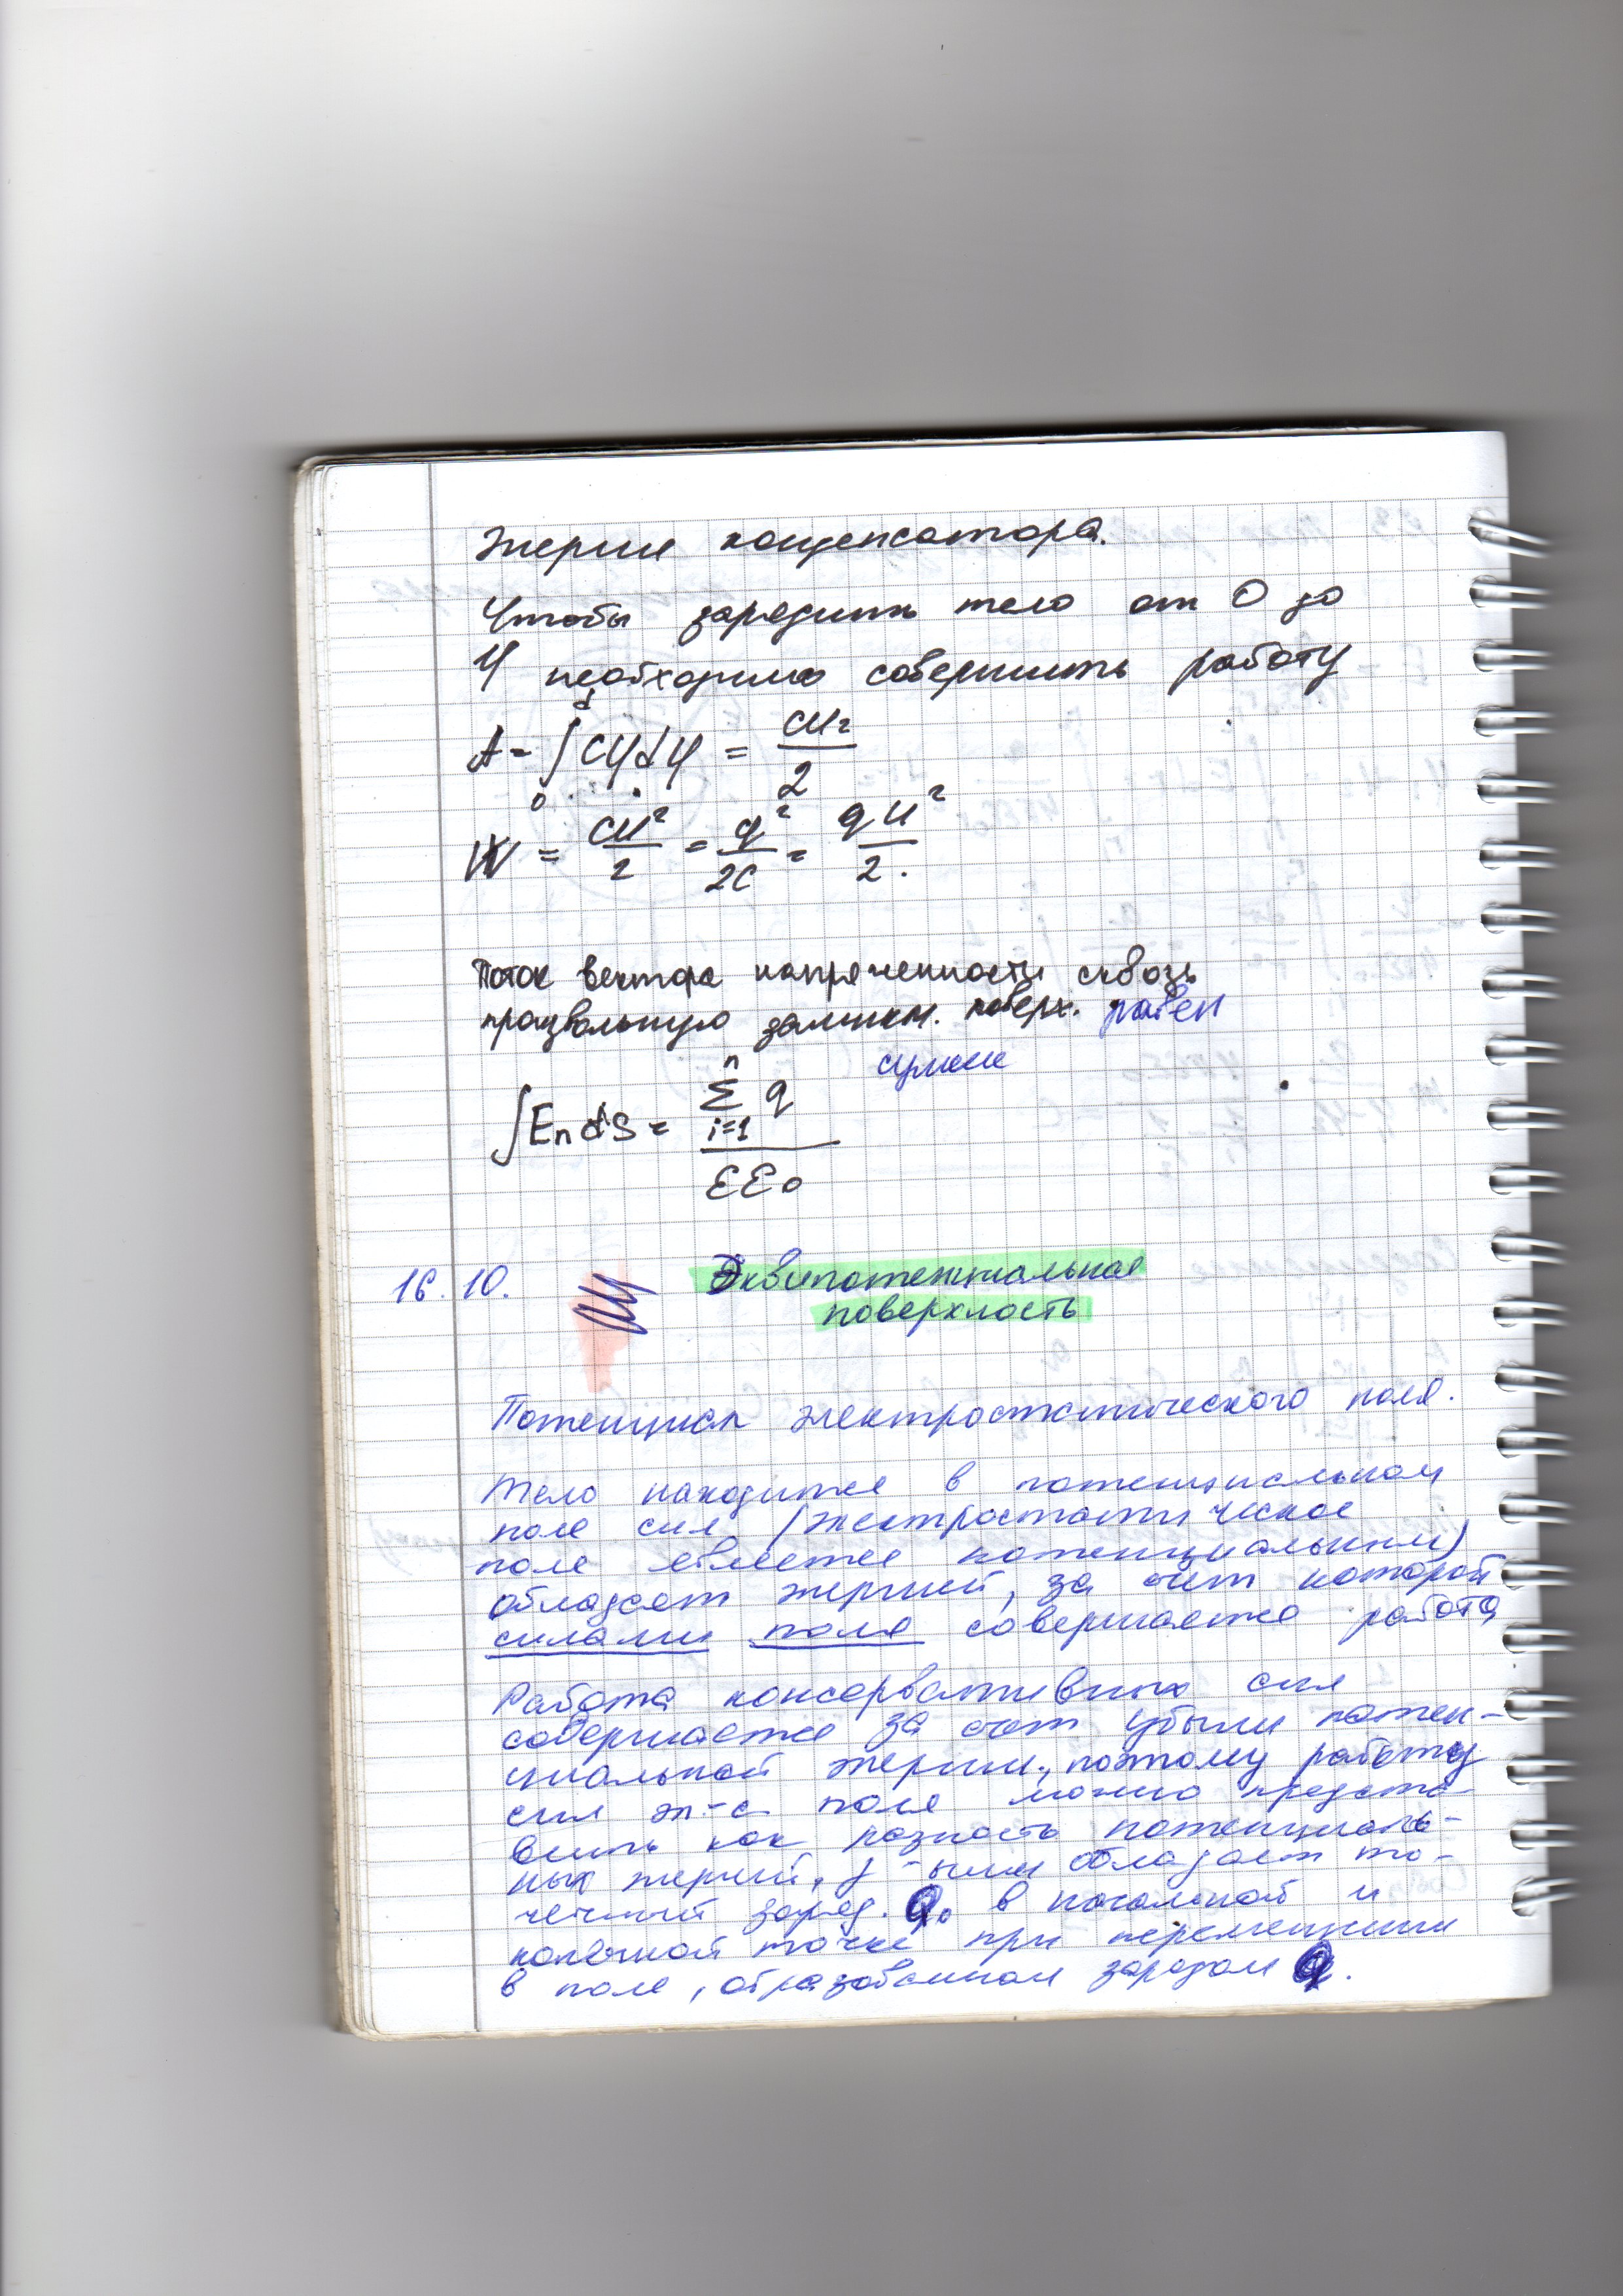 Энергия конденсатора.
Чтобы зарядить тело от 0 до
φ необходимо совершить работу
A = ∫ Cφdφ = CU² / 2
W = CU² / 2 = q² / 2C = qU² / 2.
Поток вектора напряженности сквозь
произвольную замкн. поверх. равен
сумме
∫EndS = Σ q / εε₀
n
i=1
16.10. Эквипотенциальная
поверхность
Потенциал электростатического поля.
Тело находится в потенциальном
поле сил (электростатическое
поле является потенциальным)
обладает энергией, за счет которой
силами поля совершается работа
Работа консервативных сил
совершается за счет убыли потен-
циальной энергии, поэтому работу
сил эл-с поля можно предста
вить как разность потенциаль-
ных энергий, обладает то-
чечный заряд. Q₀ в начальной и
конечной точке при перемещении
в поле, образованном зарядом Q.